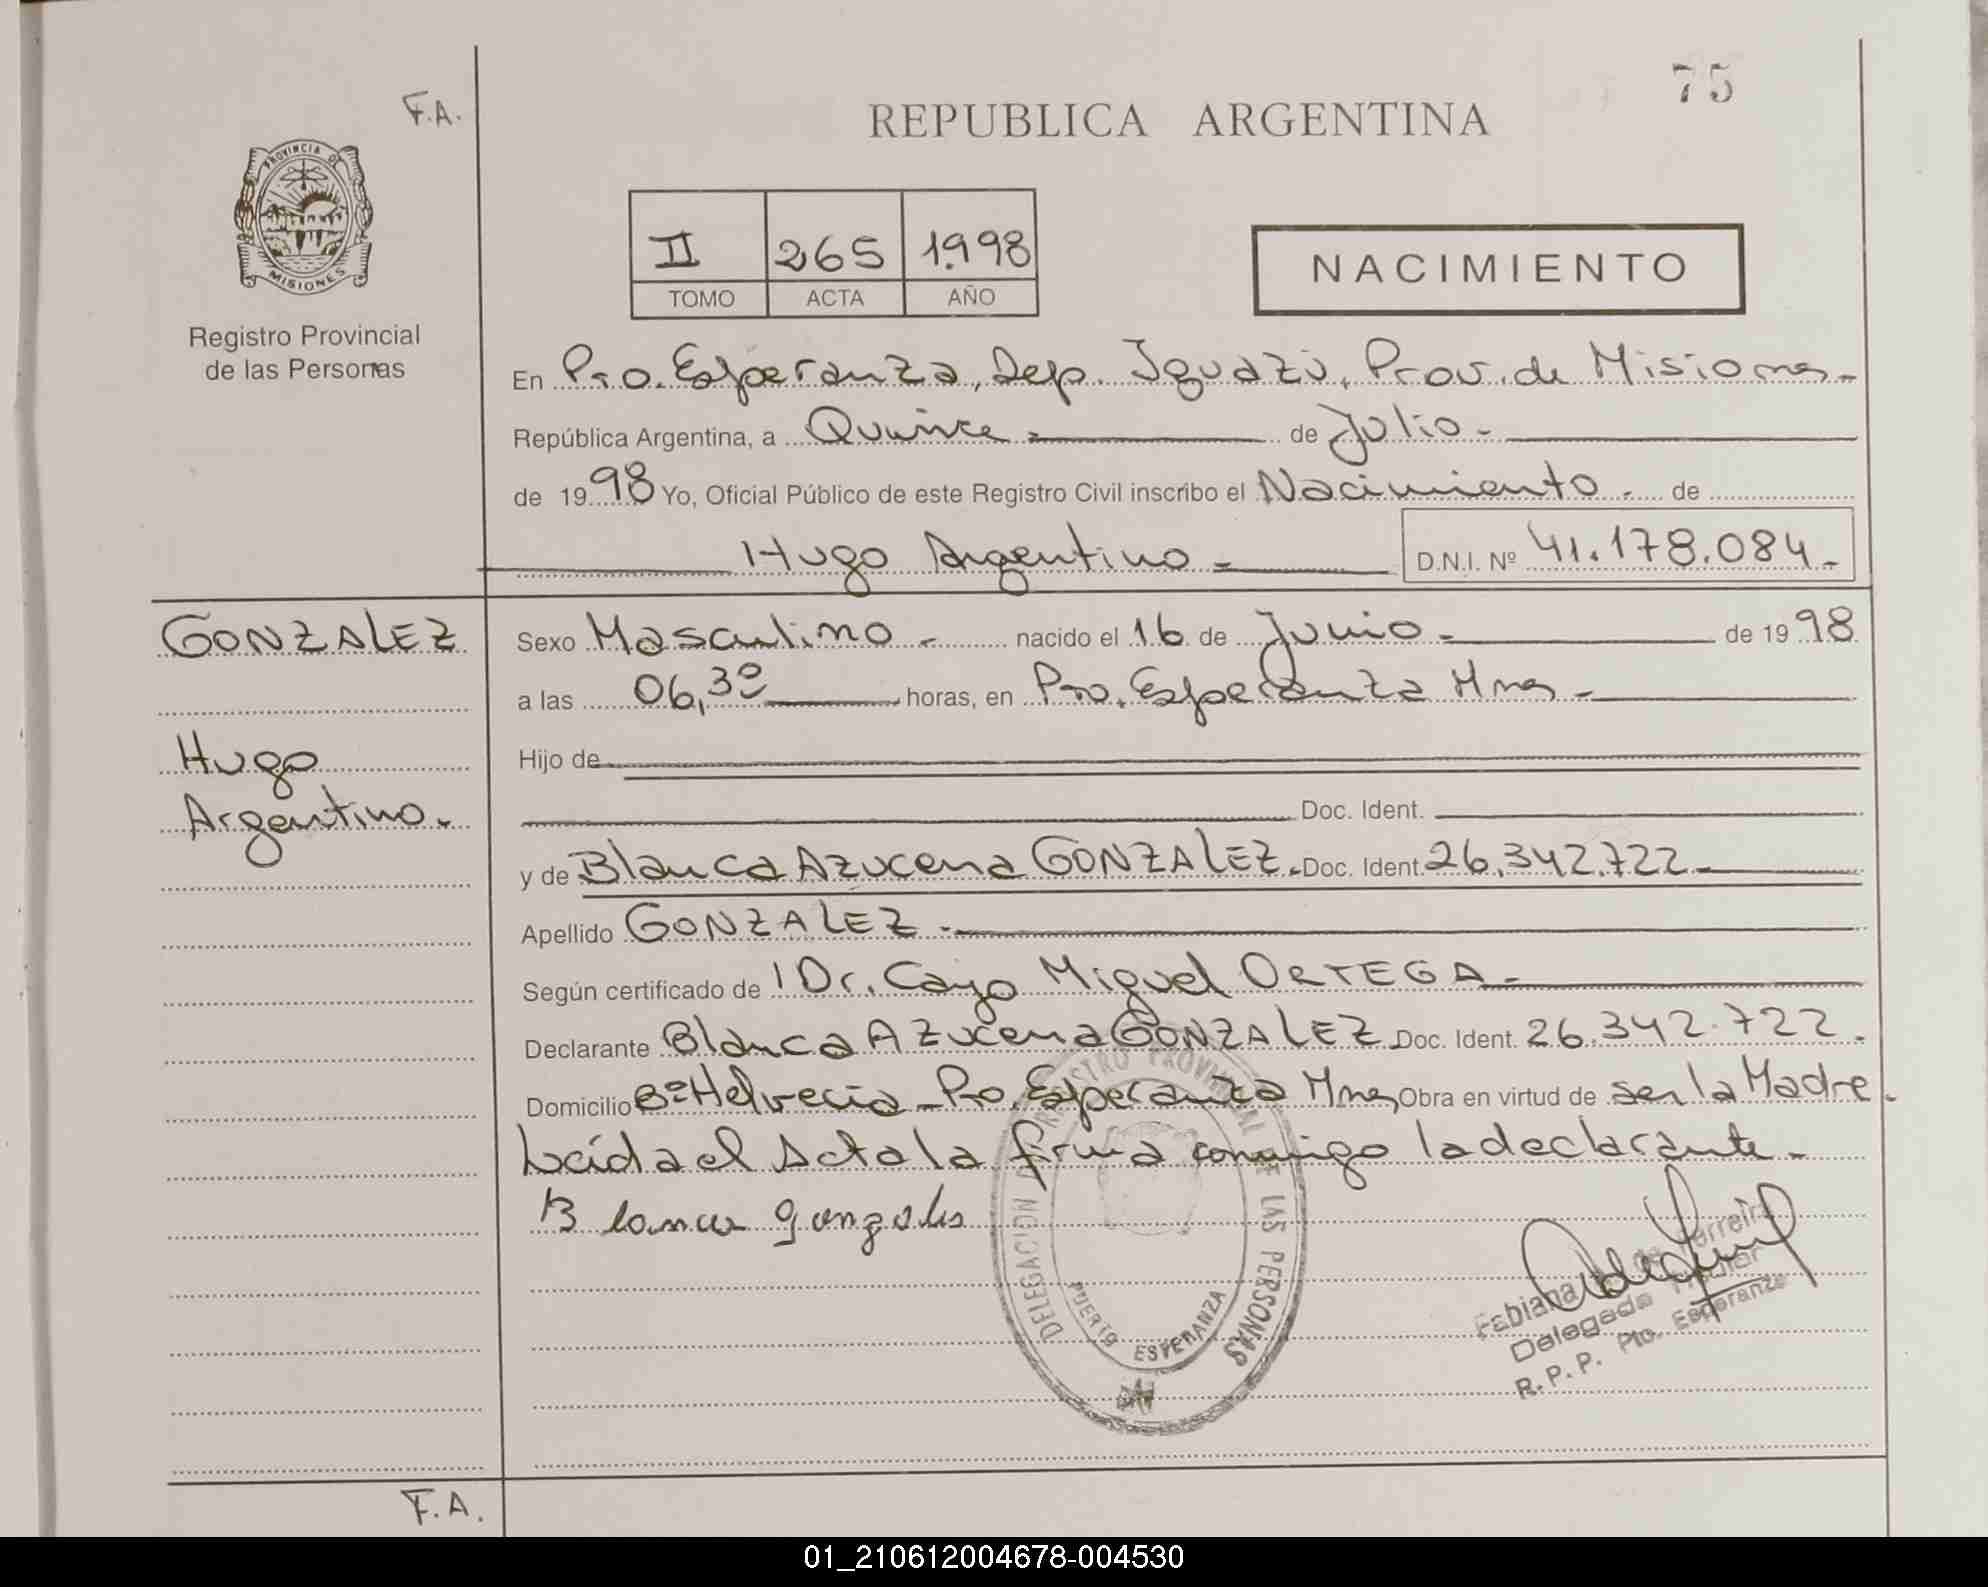 75
F.A.
REPUBLICA ARGENTINA
PROVINCIA DE
MISIONES
Registro Provincial
de las Personas
II 265 1.998
TOMO ACTA AÑO
NACIMIENTO
En Pto. Esperanza, Dep. Iguazú, Prov. de Misiones-
República Argentina, a Quince - de Julio -
de 1998 Yo, Oficial Público de este Registro Civil inscribo el Nacimiento - de
Hugo Argentino - D.N.I. Nº 41.178.084.-
GONZALEZ
Hugo
Argentino.
Sexo Masculino - nacido el 16 de Junio - de 1998
a las 06,30 horas, en Pto. Esperanza Mnes -
Hijo de
Doc. Ident.
y de Blanca Azucena GONZALEZ. Doc. Ident. 26.342.722 -
Apellido GONZALEZ -
Según certificado de 1 Dr. Cayo Miguel ORTEGA -
Declarante Blanca Azucena GONZALEZ Doc. Ident. 26.342.722.
Domicilio Bº Helvecia - Pto. Esperanza Mnes Obra en virtud de ser la Madre.
Leída el Acta la firma conmigo la declarante -
Blanca gonzales
DELEGACION REGISTRO PROVINCIAL DE LAS PERSONAS
PUERTO ESPERANZA
Fabiana de Ferreira
Delegada Titular
R.P.P. Pto. Esperanza
F.A.
01_210612004678-004530